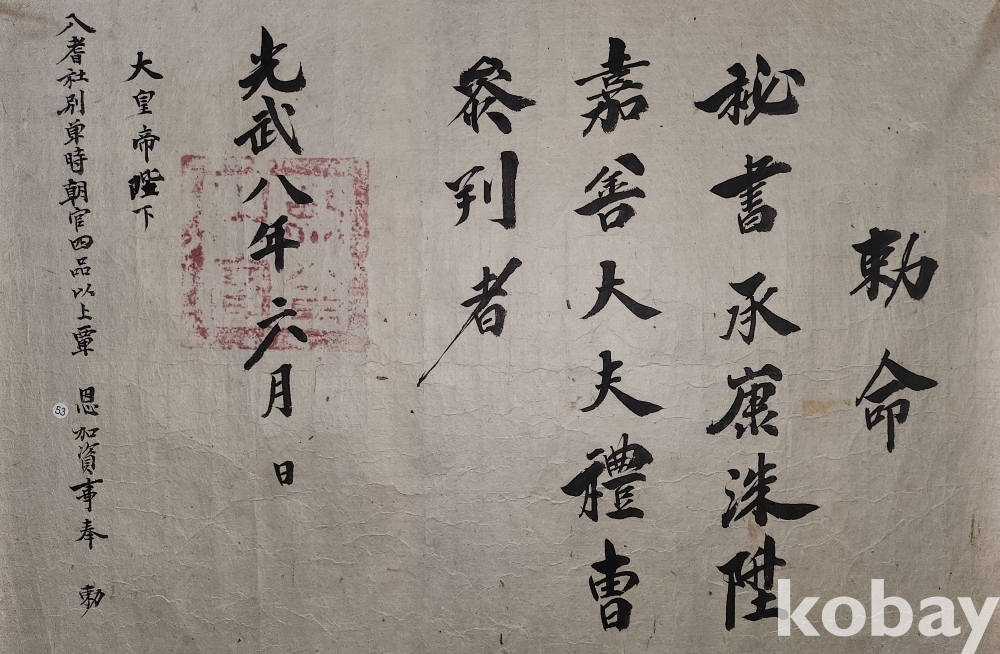 勅命
秘書承康洙陞
嘉善大夫禮曹
參判者
光武八年六月 日
大皇帝陛下
入耆社別單時朝官四品以上覃 恩加資事奉 勅
53
kobay